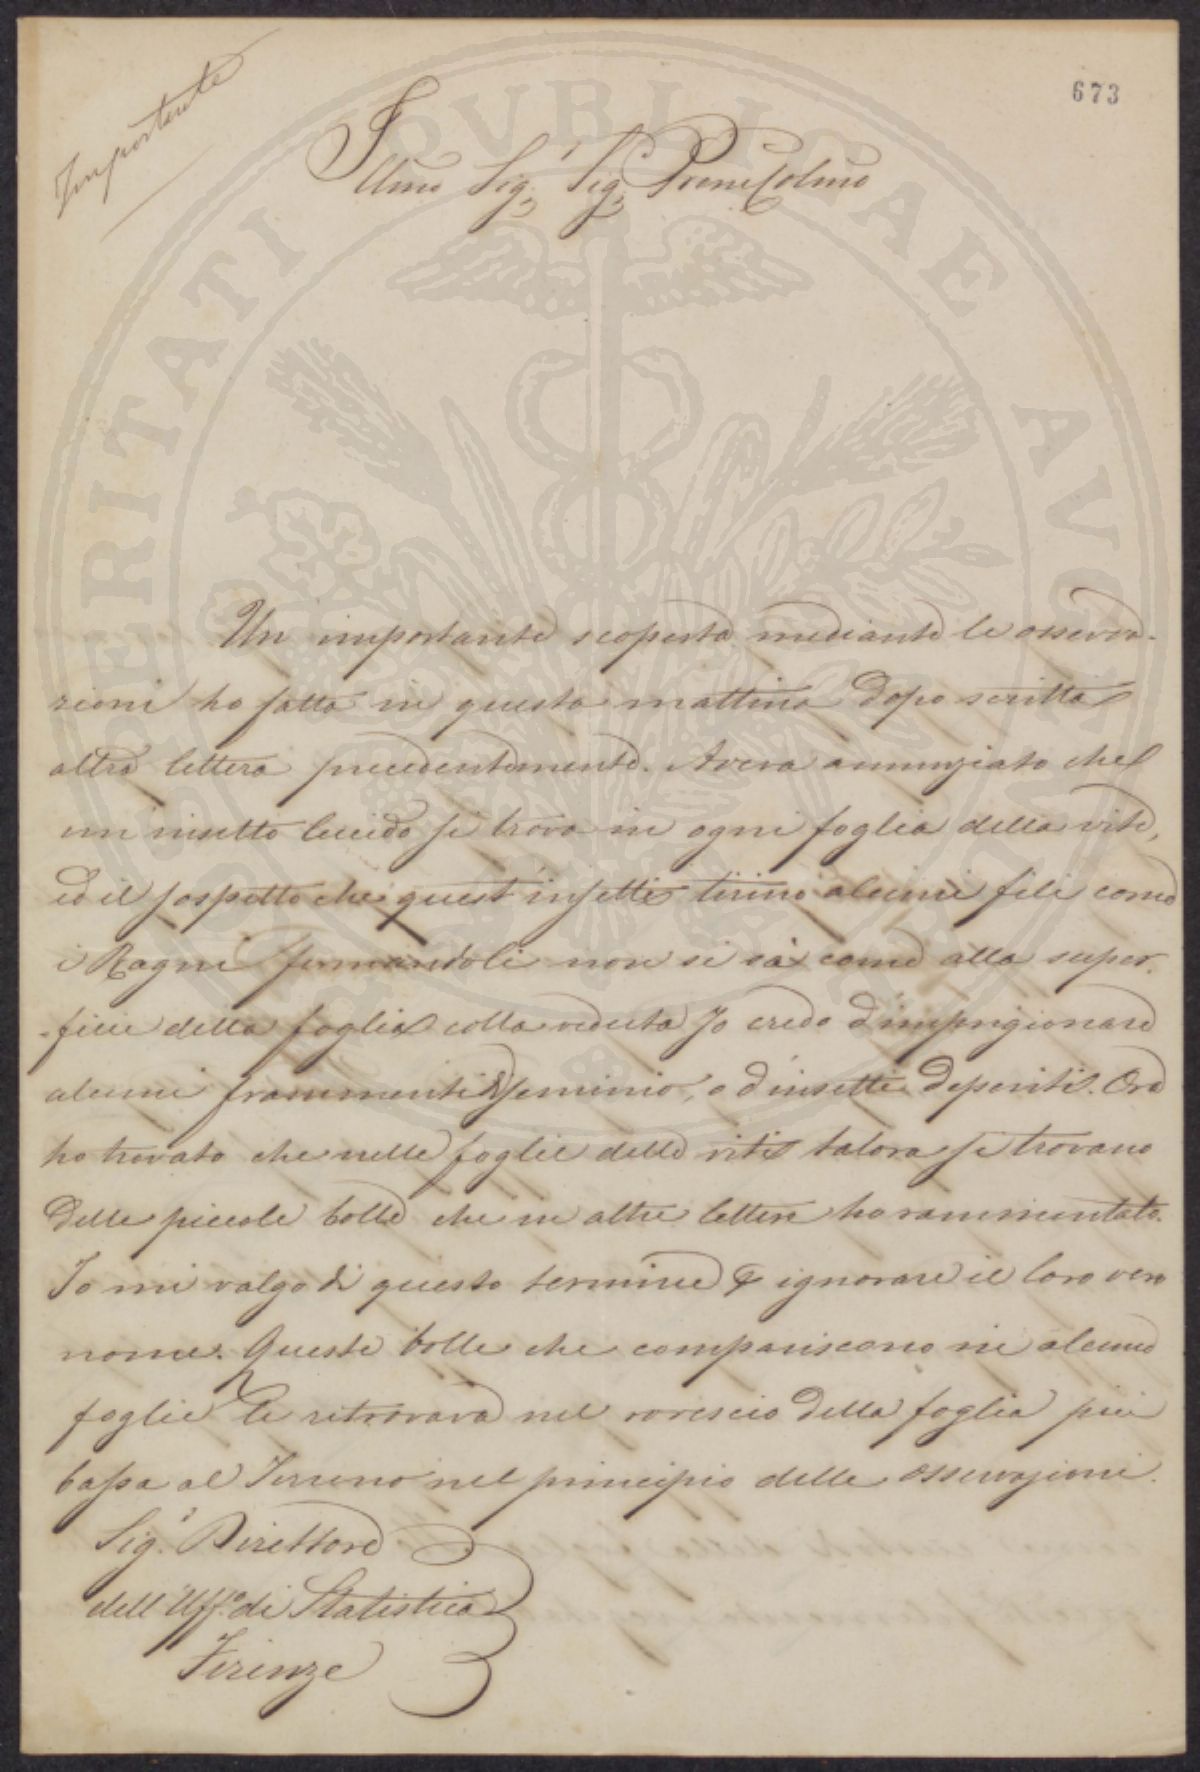 673
Importante
Illmo Sig.r Sig.r Prone Colmo
Un importante scoperta mediante le osserva-
zioni ho fatta in questa mattina dopo scritta
altra lettera precedentemente. Aveva annunziato che
un insetto lucido si trova in ogni foglia della vite,
ed il sospetto che quest'insetti tirino alcuni fili come
i Ragni fermandoli non si sà come alla super-
-ficie della foglia colla veduta Jo credo d'imprigionare
alcuni frammenti di seminio, o d'insetti deperiti. Ora
ho trovato che nelle foglie delle viti talora si trovano
delle piccole bolle che in altre lettere ho rammentato.
Io mi valgo di questo termine p ignorare il loro vero
nome. Queste bolle che compariscono in alcune
foglie le ritrovava nel rovescio della foglia più
bassa al Terreno nel principio delle osservazioni.
Sig.r Direttore
dell'Uff.o di Statistica
Firenze
PUBLICAE AUG